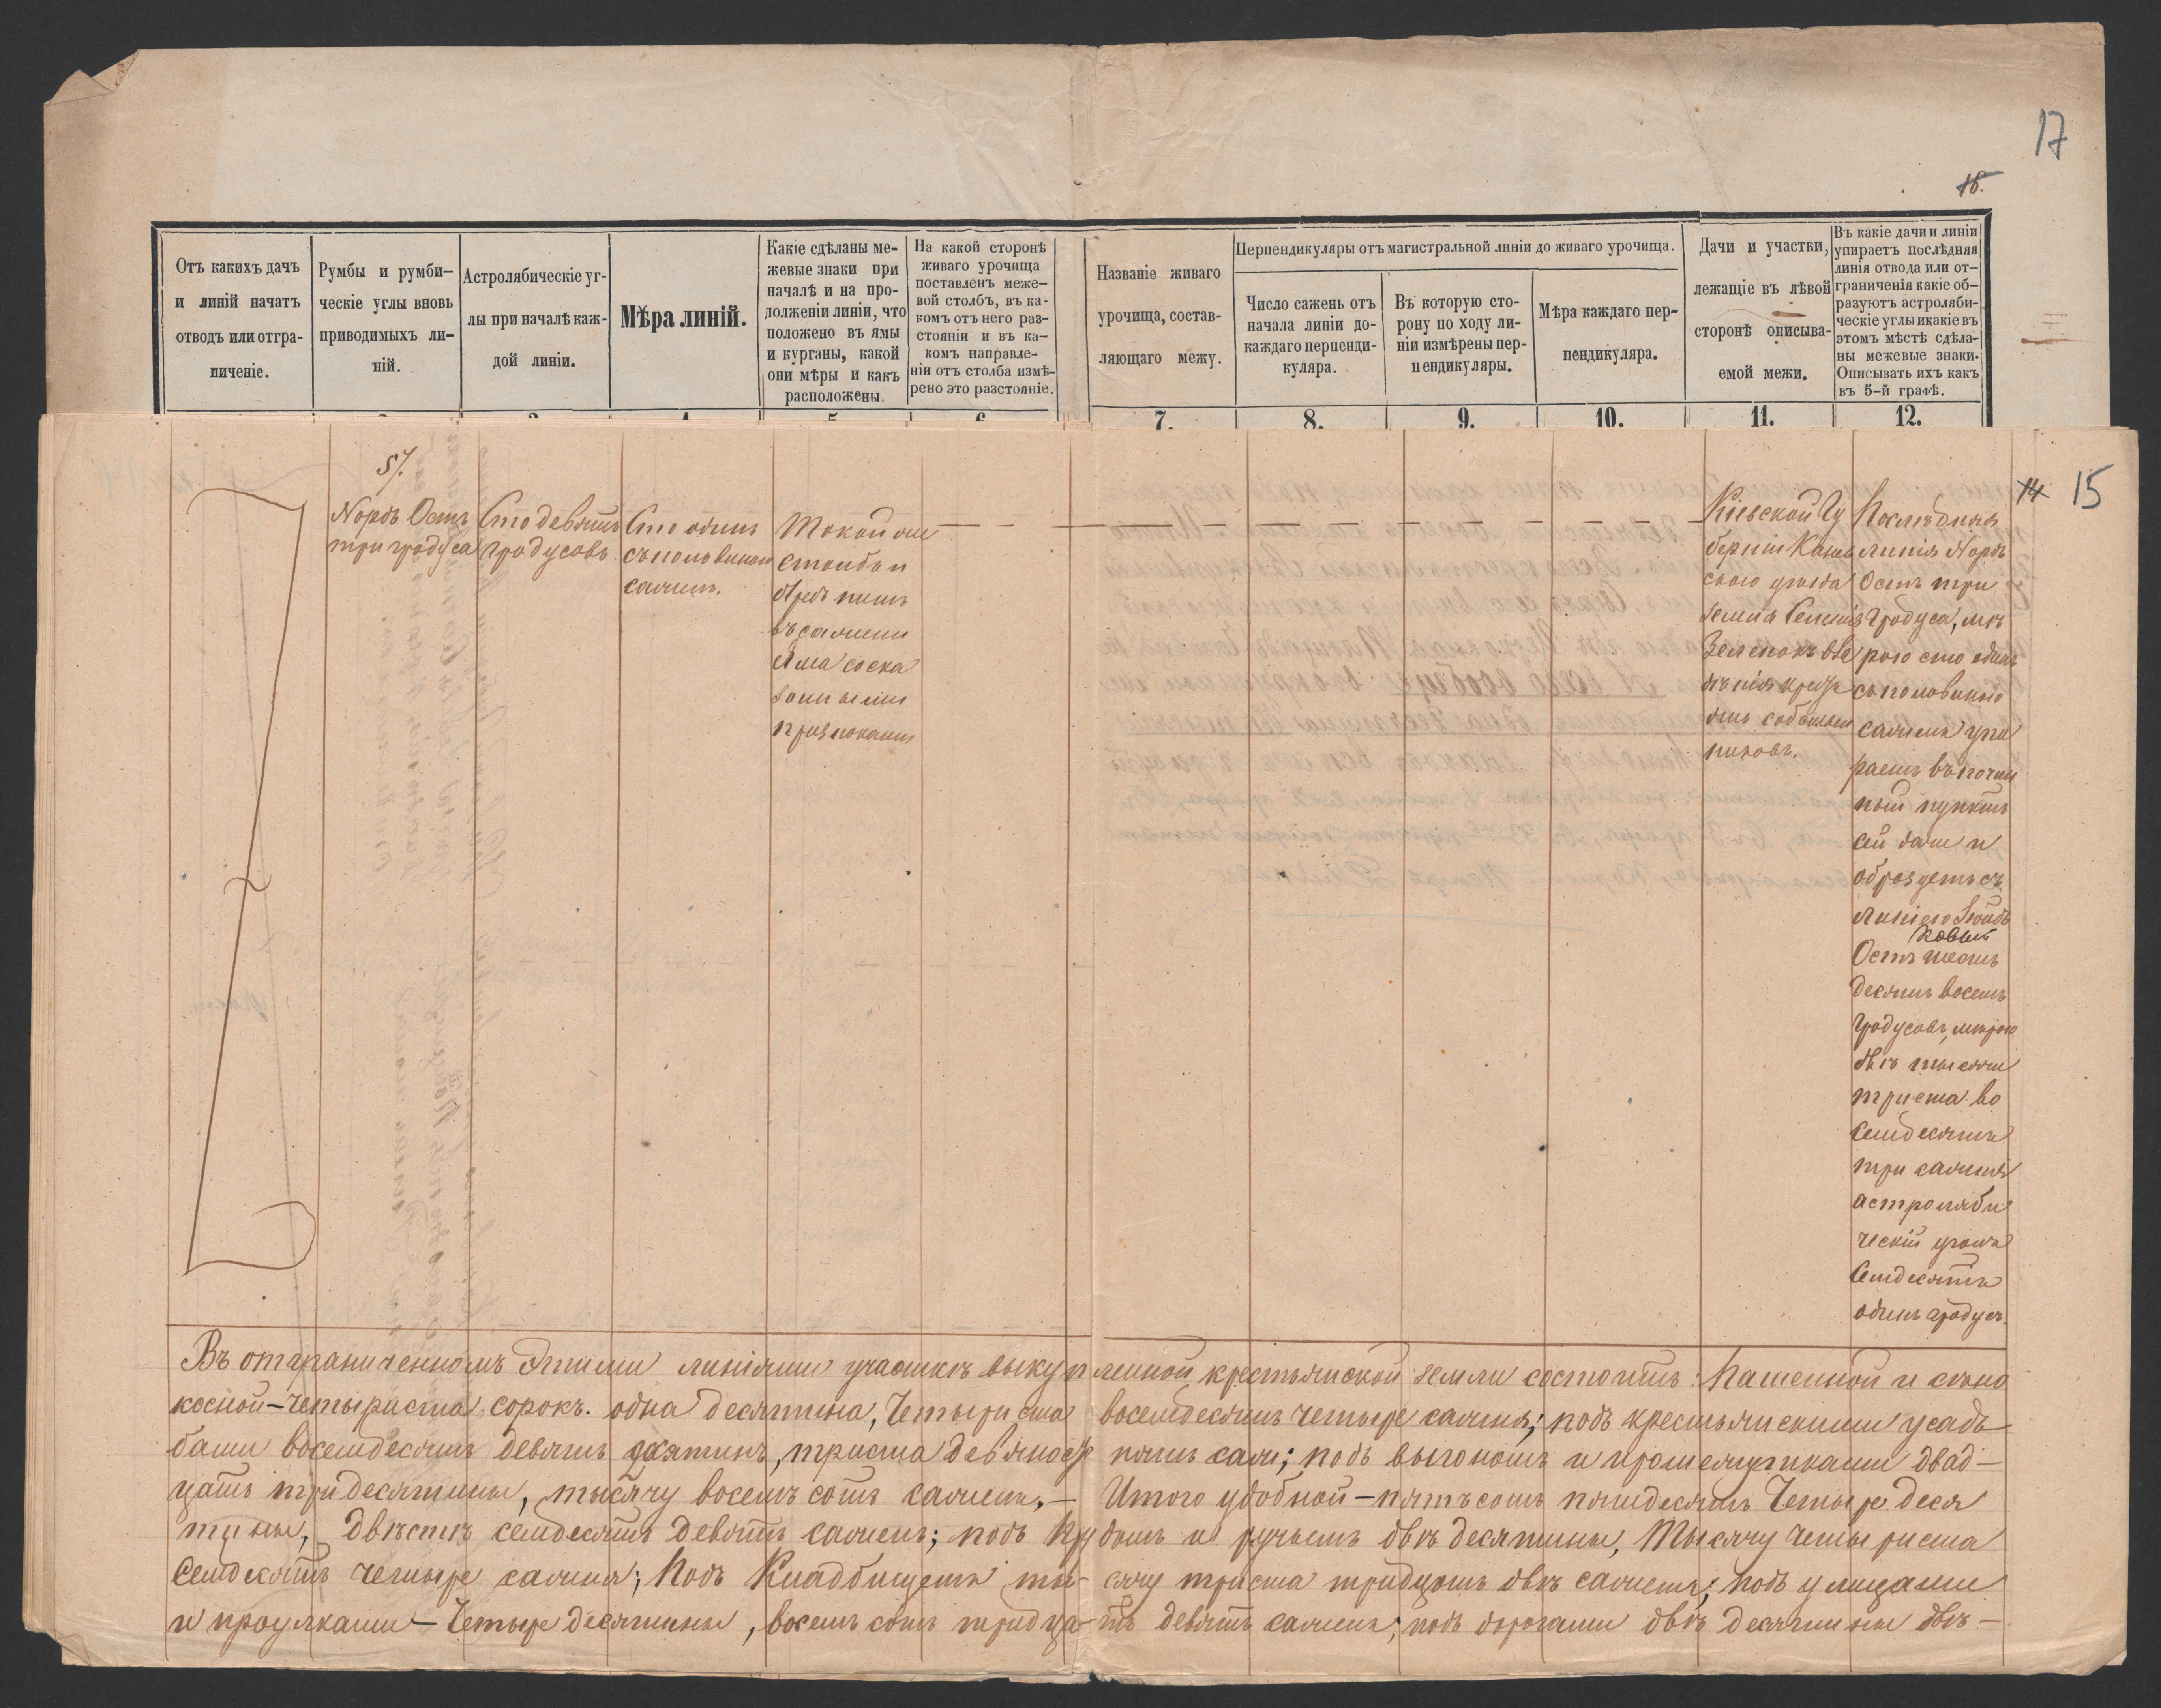 17
18.
Отъ какихъ дачъ
и линій начатъ
отводъ или отгра-
ниченіе.
Румбы и румби-
ческіе углы вновь
приводимыхъ ли-
ній.
Астролябическіе уг-
лы при началѣ каж-
дой линіи.
Мѣра линій.
Какіе сдѣланы ме-
жевые знаки при
началѣ и на про-
долженіи линіи, что
положено въ ямы
и курганы, какой
они мѣры и какъ
расположены.
На какой сторонѣ
живаго урочища
поставленъ меже-
вой столбъ, въ ка-
комъ отъ него раз-
стояніи и въ ка-
комъ направле-
ніи отъ столба измѣ-
рено это разстояніе.
Названіе живаго
урочища, состав-
ляющаго межу.
Перпендикуляры отъ магистральной линіи до живаго урочища.
Число сажень отъ
начала линіи до-
каждаго перпенди-
куляра.
Въ которую сто-
рону по ходу ли-
ніи измѣрены пер-
пендикуляры.
Мѣра каждаго пер-
пендикуляра.
Дачи и участки,
лежащіе въ лѣвой
сторонѣ описыва-
емой межи.
Въ какіе дачи и линіи
упираетъ послѣдняя
линія отвода или от-
граниченія какіе об-
разуютъ астроляби-
ческіе углы и какіе въ
этомъ мѣстѣ сдѣла-
ны межевые знаки.
Описывать ихъ какъ
въ 5-й графѣ.
7. 8. 9. 10. 11. 12.
14 15
57.
Нордъ Остъ
три градуса
Сто девять
градусовъ
Сто одинъ
съ половиною
сажень.
Такой же
столбъ и
въ сажени
Яма со ска
занными
признаками
Кіевской Гу
берніи Канев
скаго уѣзда
земля Селенія
Зеленокъ вла
дѣнія кресть
янъ собствен
никовъ.
Послѣдняя
линія Нордъ
Остъ три
градуса, мѣ
рою сто одинъ
съ половиною
сажень упи
раетъ въ почин
ный пунктъ
сей дачи и
образуетъ съ
линіею Зюйдъ
Остъ шесть
десятъ восемь
градусовъ, мѣрою
двѣ тысячи
триста во
семдесятъ
три сажня
астроляби
ческій уголъ
Семдесятъ
одинъ градусъ.
Въ отграниченномъ этими линіями участкѣ выкупленной крестьянской земли состоитъ: Пашенной и сѣно
косной – четыриста сорокъ одна десятина, Четыриста восемдесятъ четыре сажня; подъ крестьянскими усадь
бами восемдесятъ девять десятинъ, триста девяносто пять саж; подъ выгономъ и промежутками двад–
цать три десятины, тысячу восемь сотъ сажень. – Итого удобной – пятьсотъ пятдесятъ Четыре деся
тины, двѣстѣ семдесятъ девять сажень; подъ прудомъ и ручьемъ двѣ десятины, Тысячу четыриста
Семдесятъ четыре сажня; Подъ Кладбищемъ ты- сячу триста тридцать двѣ сажень; подъ улицами
и проулками – Четыре десятины, восемь сотъ тридца- ть девять сажень; подъ дорогами двѣ десятины двѣ–